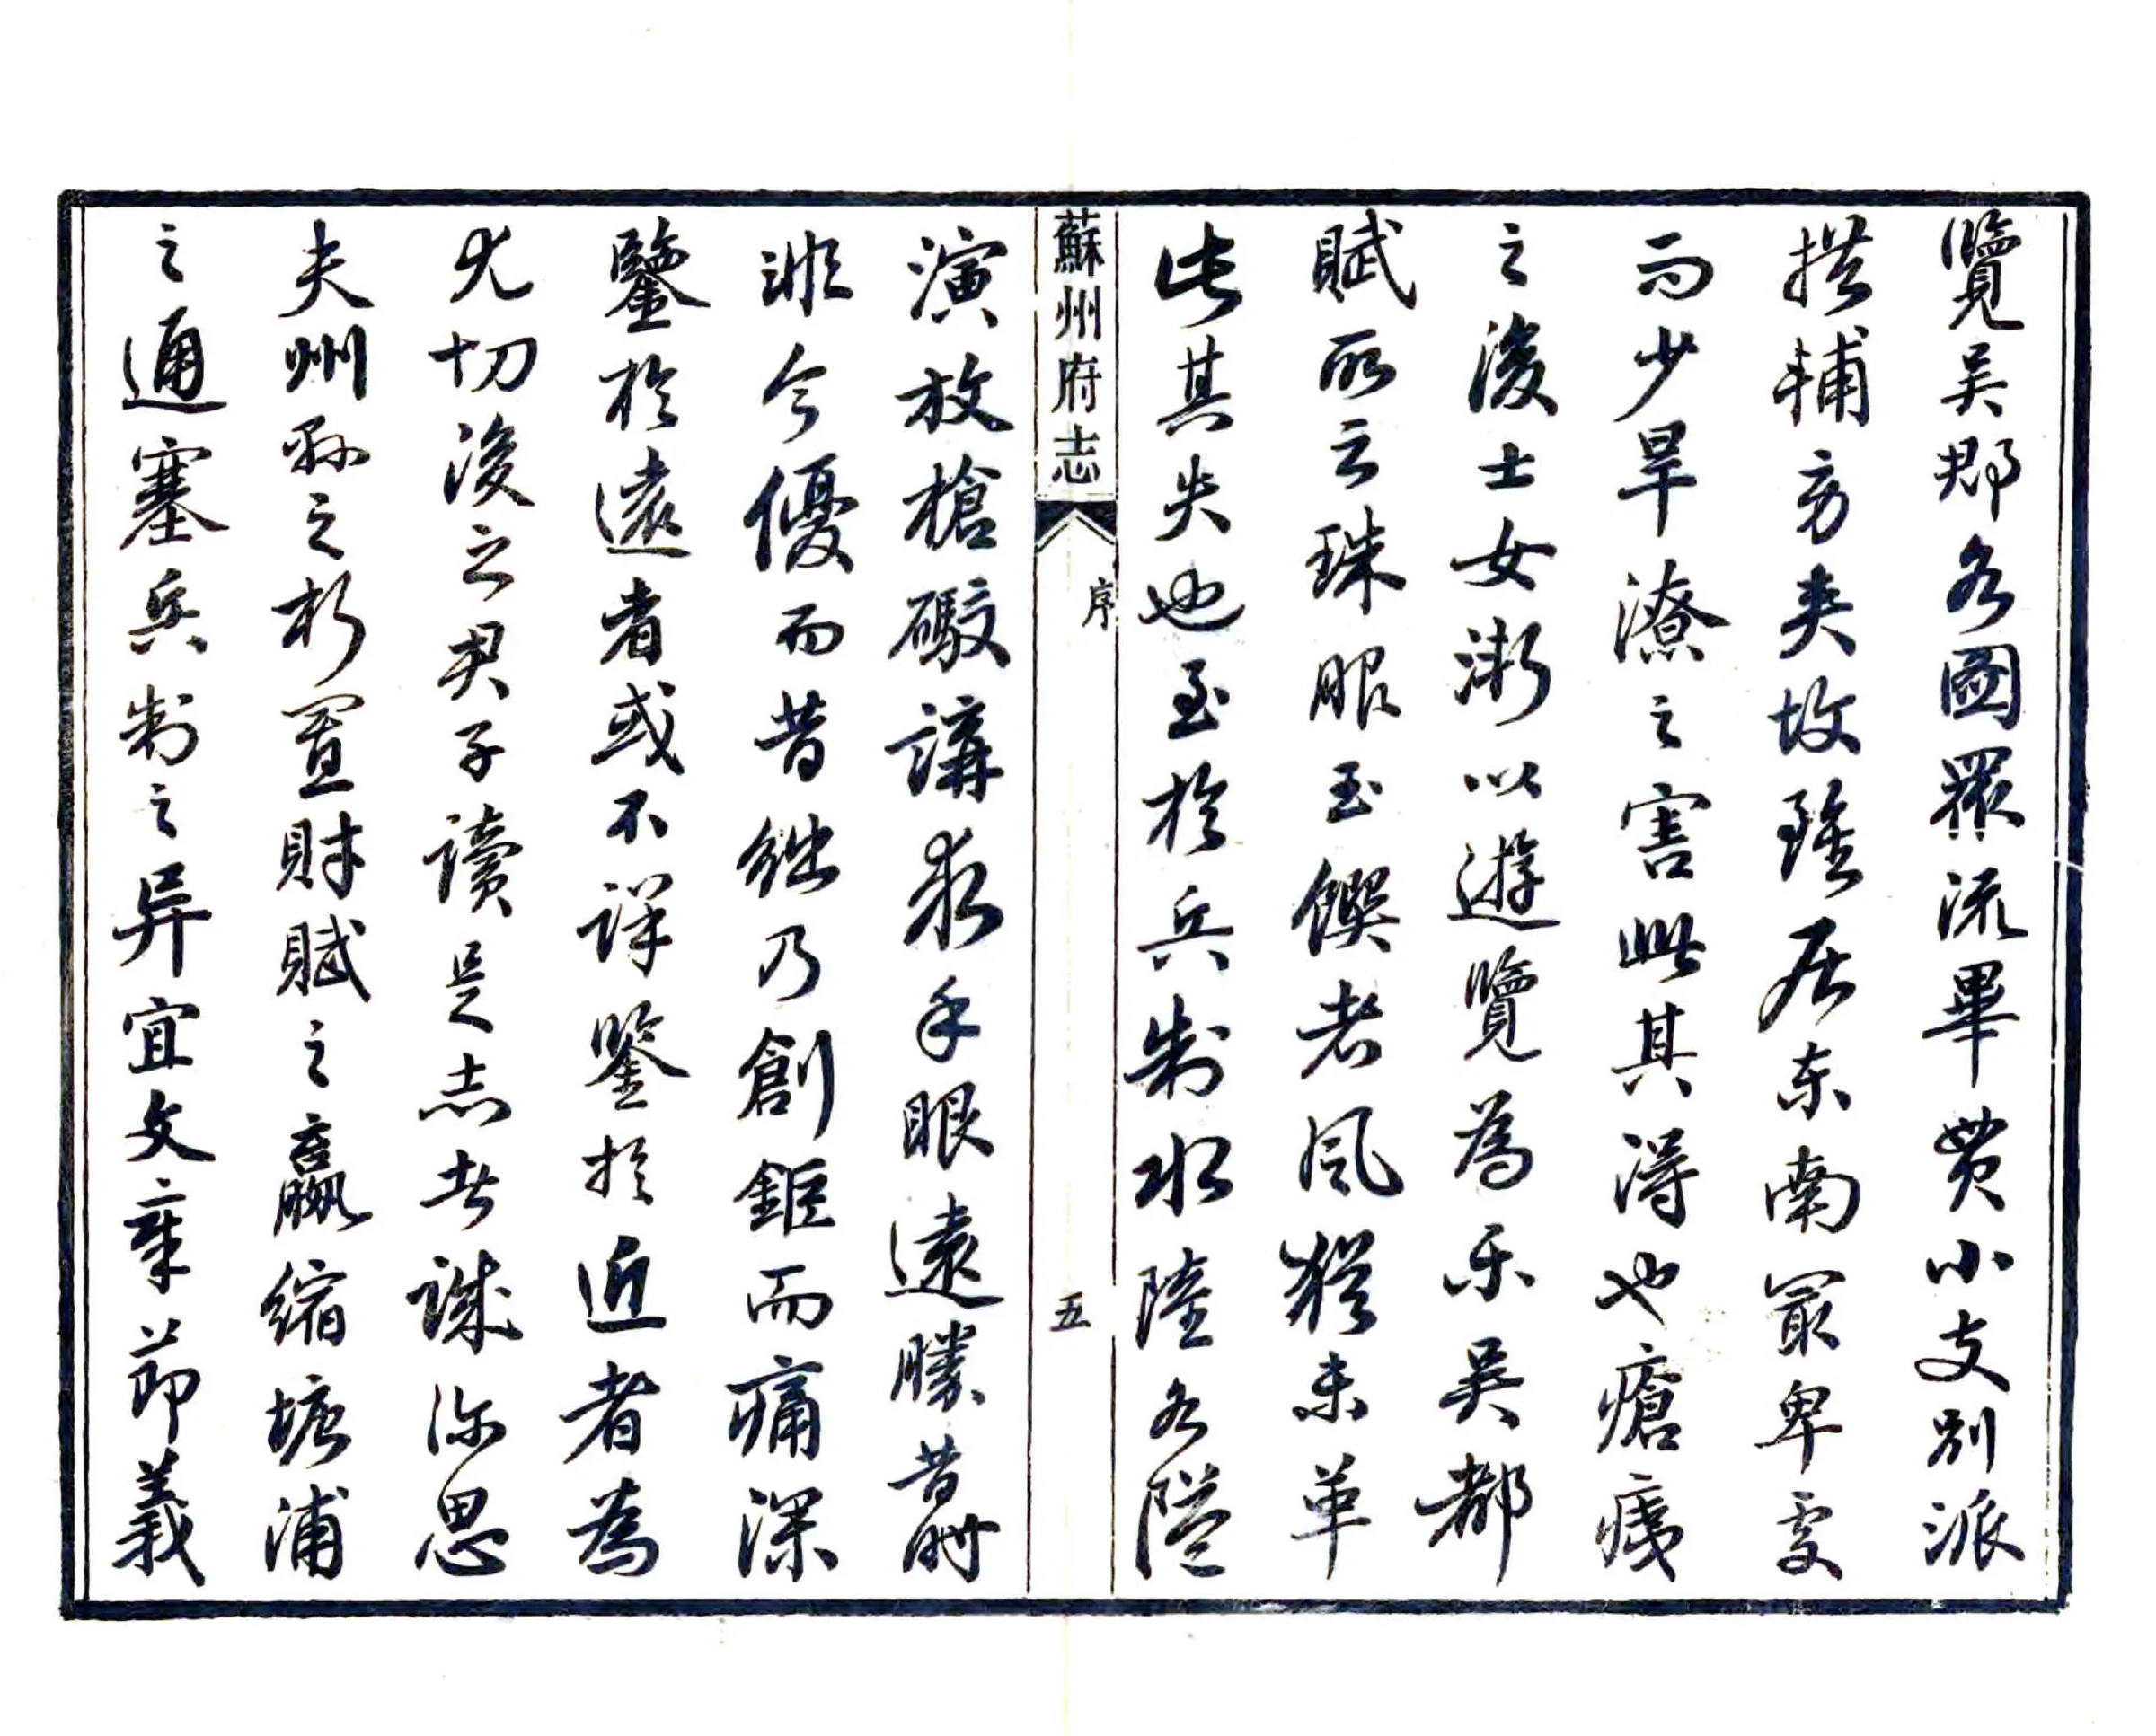 覽吳郡各圖眾流畢貫小支別派
拱輔旁夾故雖居东南最卑處
而少旱潦之害此其得也瘡痍
之後士女漸以遊覽為乐吳都
賦所云珠服玉饌者风猶未革
此其失也至於兵制水陸各隘
蘇州府志
序
五
演放槍礮講求手眼遠勝昔時
涨今優而昔絀乃創鉅而痛深
鑒於遠者或不詳鑒於近者為
尤切後之君子讀是志者誠深思
夫州縣之析置財賦之贏縮塘浦
之通塞兵制之异宜文章節義